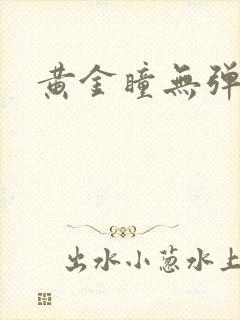 黄金瞳無弹
出水小葱水上